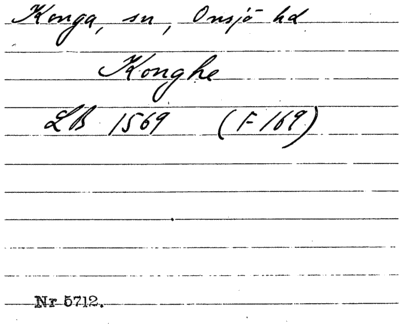 Konga, sn, Onsjö hd
Konghe
LB 1569 (F 169)
Nr 5712.